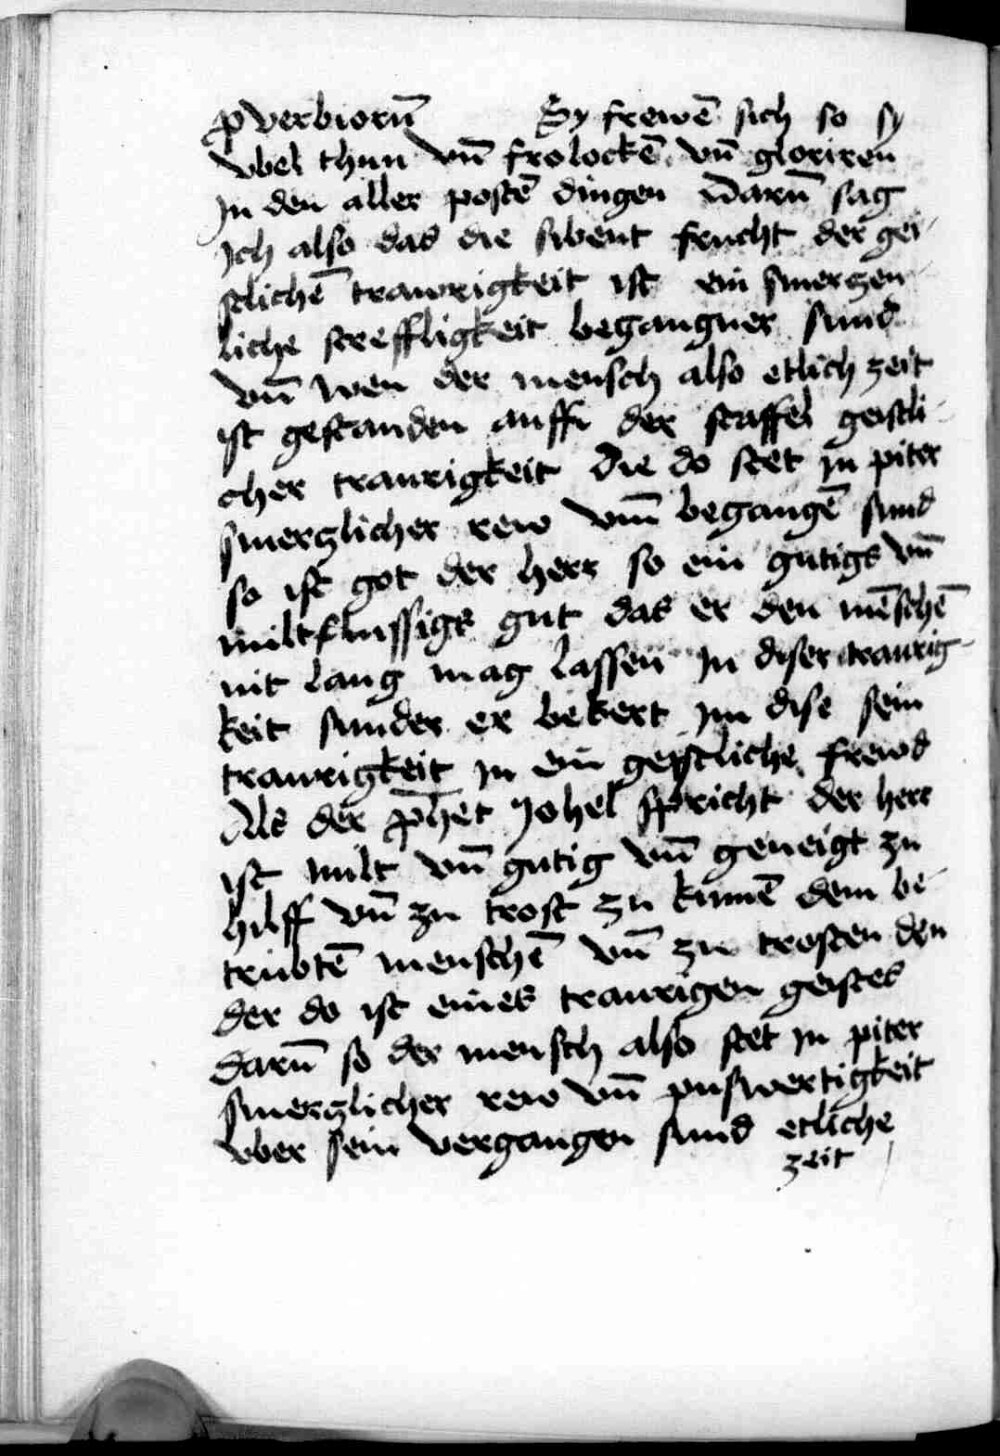 ꝓverbiorū Sy frewē sich so sy
vbel thun vn̄ frolockē vn̄ gloriren
In den aller postē dingen Darū sag
Ich also das die sibent frucht der gei-
stlichē trawrigkeit ist ein smerzen
liche streffligkeit begangner sund
vn̄ wen der mensch also etlich zeit
ist gestanden auff der staffel geistli-
cher traurigkeit die do stet in piter
smerzlicher rew vm̄ begangē sund
so ist got der herr so ein gutigs vn̄
miltflussigs gut das er den mēschē
nit lang mag lassen In diser traurig-
keit sunder er bekert im dise sein
trawrigkeit in ein geystliche frewd
Als der ꝓphet Johel spricht der herr
ist milt vn̄ gutig vn̄ geneigt zu
hilff vn̄ zu trost zu kumē dem be-
trubtē menschē vn̄ zu trosten den
der do ist eines traurigen geistes
darū so der mensch also stet in piter
smerzlicher rew vn̄ puswertigkeit
vber sein vergangen sund etliche
zeit